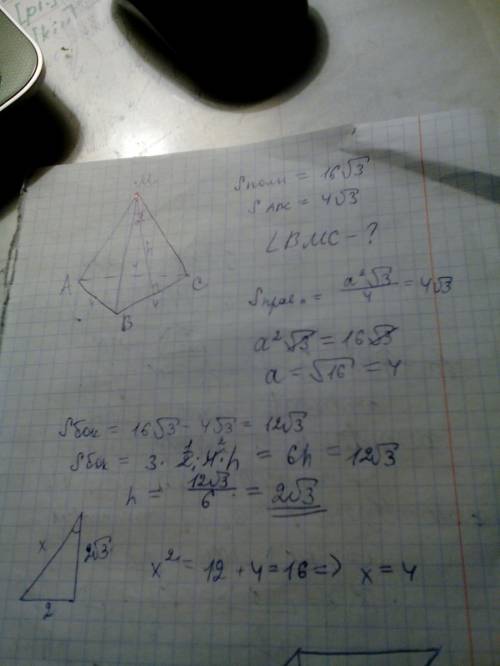 M
A
B
C
h
4
Sполн = 16√3
S ABC = 4√3
∠BMC - ?
Sправ.п = a²√3/4 = 4√3
a²√3 = 16√3
a = √16 = 4
Sбок = 16√3 - 4√3 = 12√3
Sбок = 3 · 1/2 · 4 · h = 6h = 12√3
h = 12√3/6 = 2√3
x
2√3
2
x² = 12 + 4 = 16 => x = 4